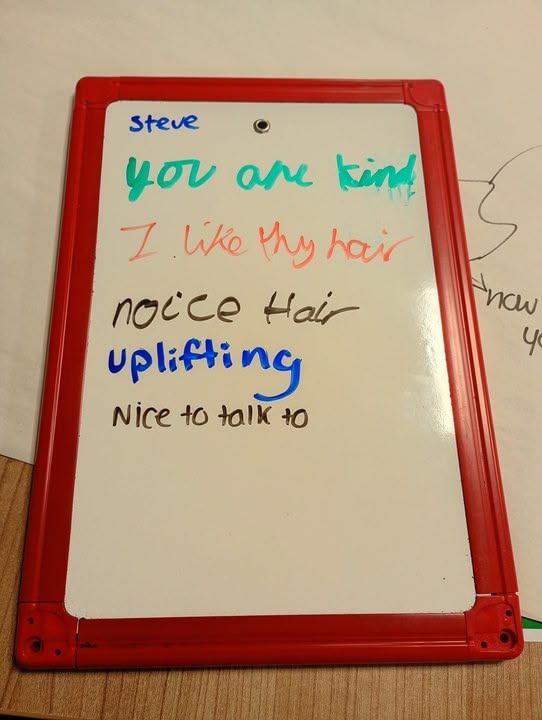 steve
you are kind
I like thy hair
noice Hair
uplifting
Nice to talk to
how